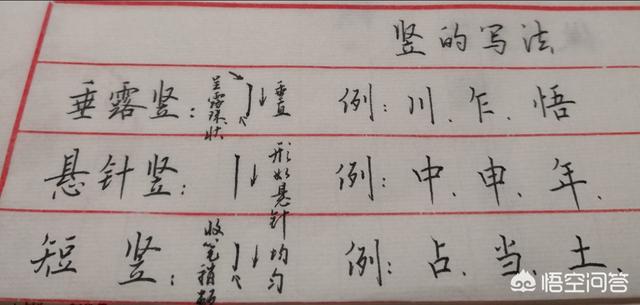 竖的写法
垂露竖：呈露珠状 垂直 例：川、乍、悟
悬针竖： 形如悬针 例：中、申、年、
短竖：收笔稍顿 均匀 例：占、当、土
悟空问答